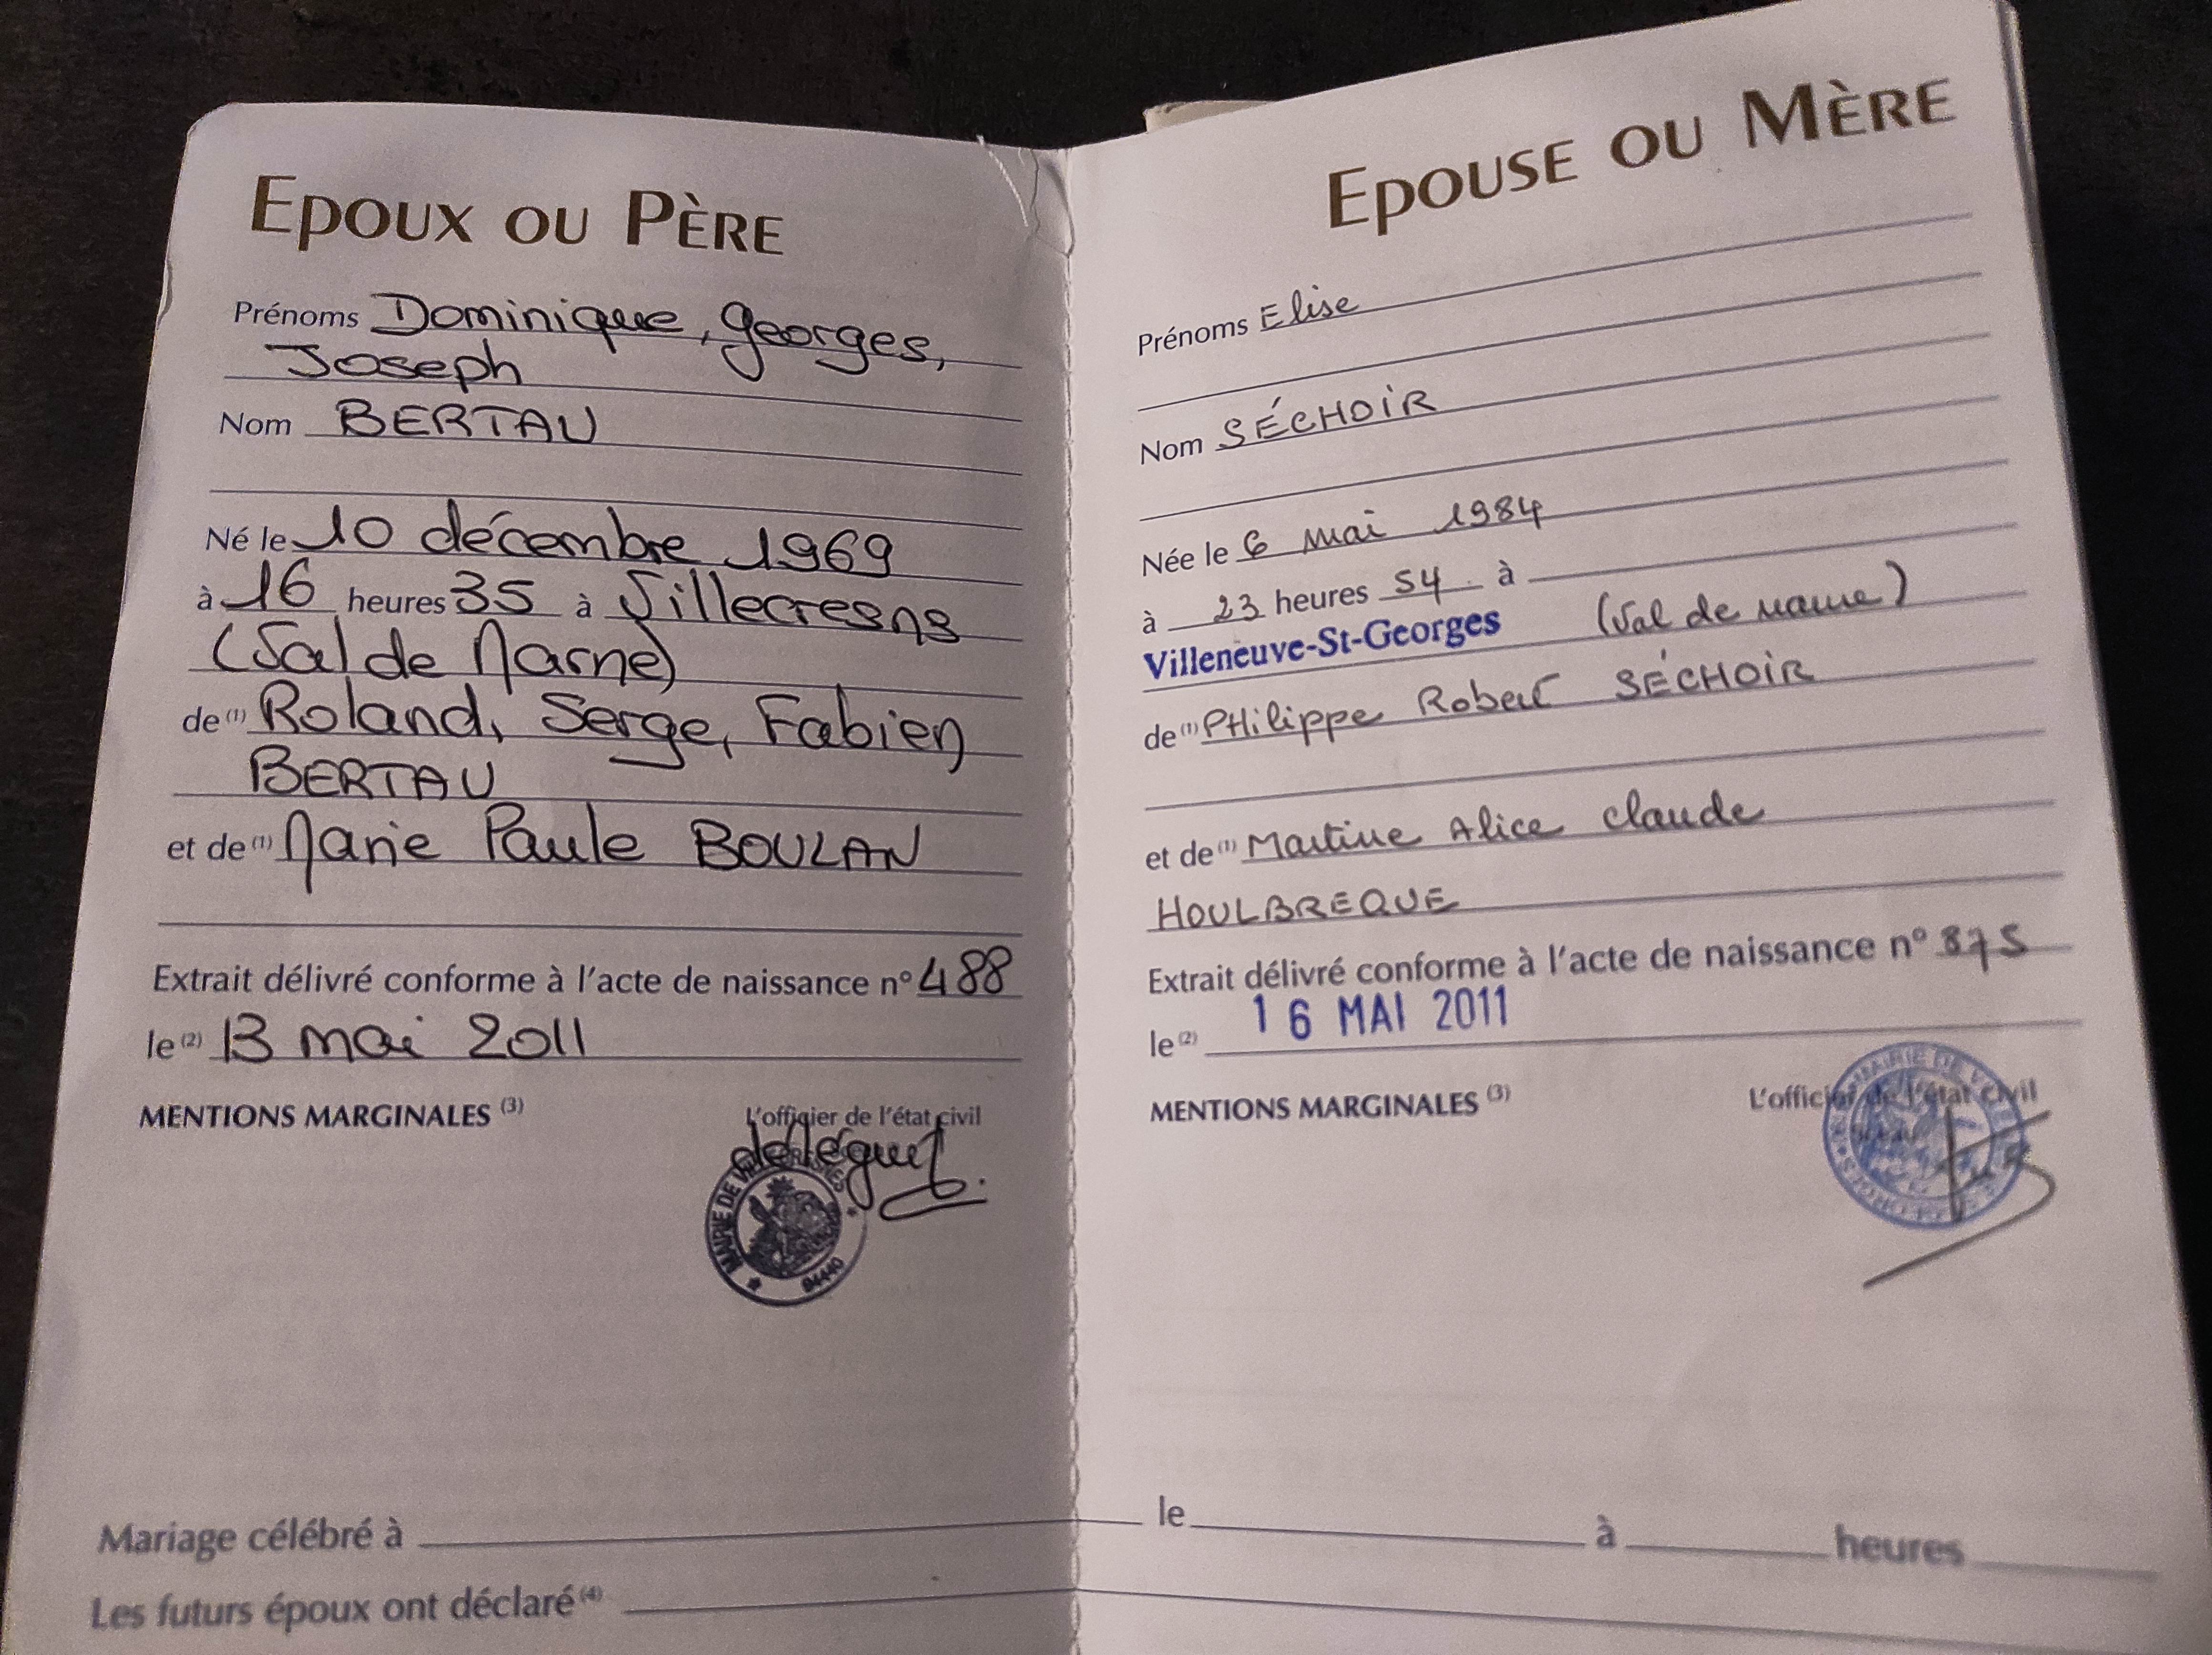 EPOUX OU PÈRE
Prénoms Dominique, Georges,
Joseph
Nom BERTAU
Né le 10 décembre 1969
à 16 heures 35 à Villecresns
(Val de Marne)
de (1) Roland, Serge, Fabien
BERTAU
et de (1) Marie Paule BOULAN
Extrait délivré conforme à l'acte de naissance n° 488
le (2) 13 mai 2011
MENTIONS MARGINALES (3)
L'officier de l'état civil
délégué
MAIRIE DE
94440
EPOUSE OU MÈRE
Prénoms Elise
Nom SÉCHOIR
Née le 6 mai 1984
à 23 heures 54 à
Villeneuve-St-Georges (Val de marne)
de (1) PHilippe Robert SÉCHOIR
et de (1) Martine Alice Claude
HOULBREQUE
Extrait délivré conforme à l'acte de naissance n° 875
le (2) 16 MAI 2011
MENTIONS MARGINALES (3)
L'officier de l'état civil
MAIRIE DE
Mariage célébré à le à heures
Les futurs époux ont déclaré (4)